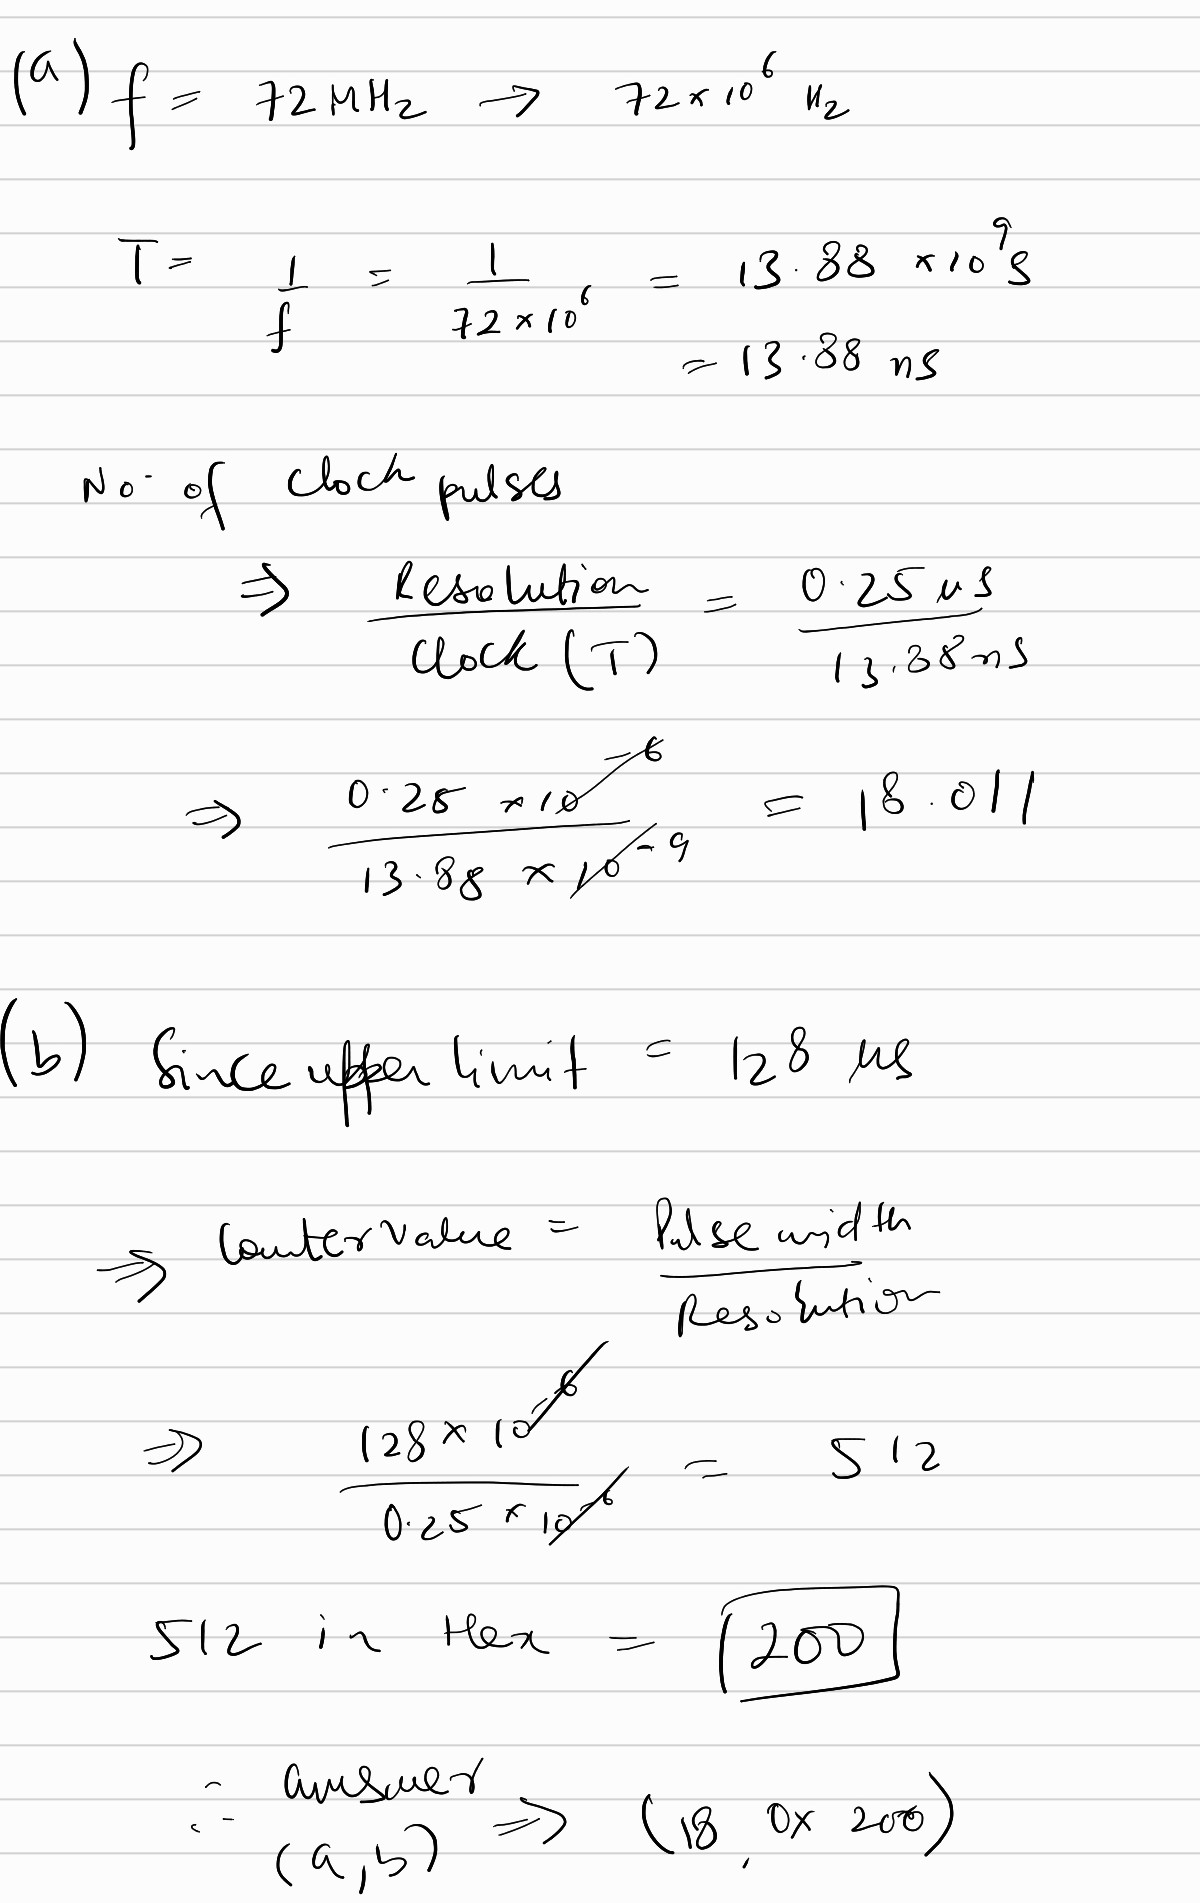 (a) f = 72 MHz → 72 × 10⁶ Hz
T = 1/f = 1/(72 × 10⁶) = 13.88 × 10⁹ s
= 13.88 ns
No. of clock pulses
⇒ Resolution/Clock (T) = 0.25 μs/13.88 ns
⇒ (0.25 × 10⁻⁶)/(13.88 × 10⁻⁹) = 18.011
(b) Since upper limit = 128 μs
⇒ Counter value = Pulse width/Resolution
⇒ (128 × 10⁻⁶)/(0.25 × 10⁻⁶) = 512
512 in Hex = 200
∴ answer
(a,b) ⇒ (18, 0x 200)